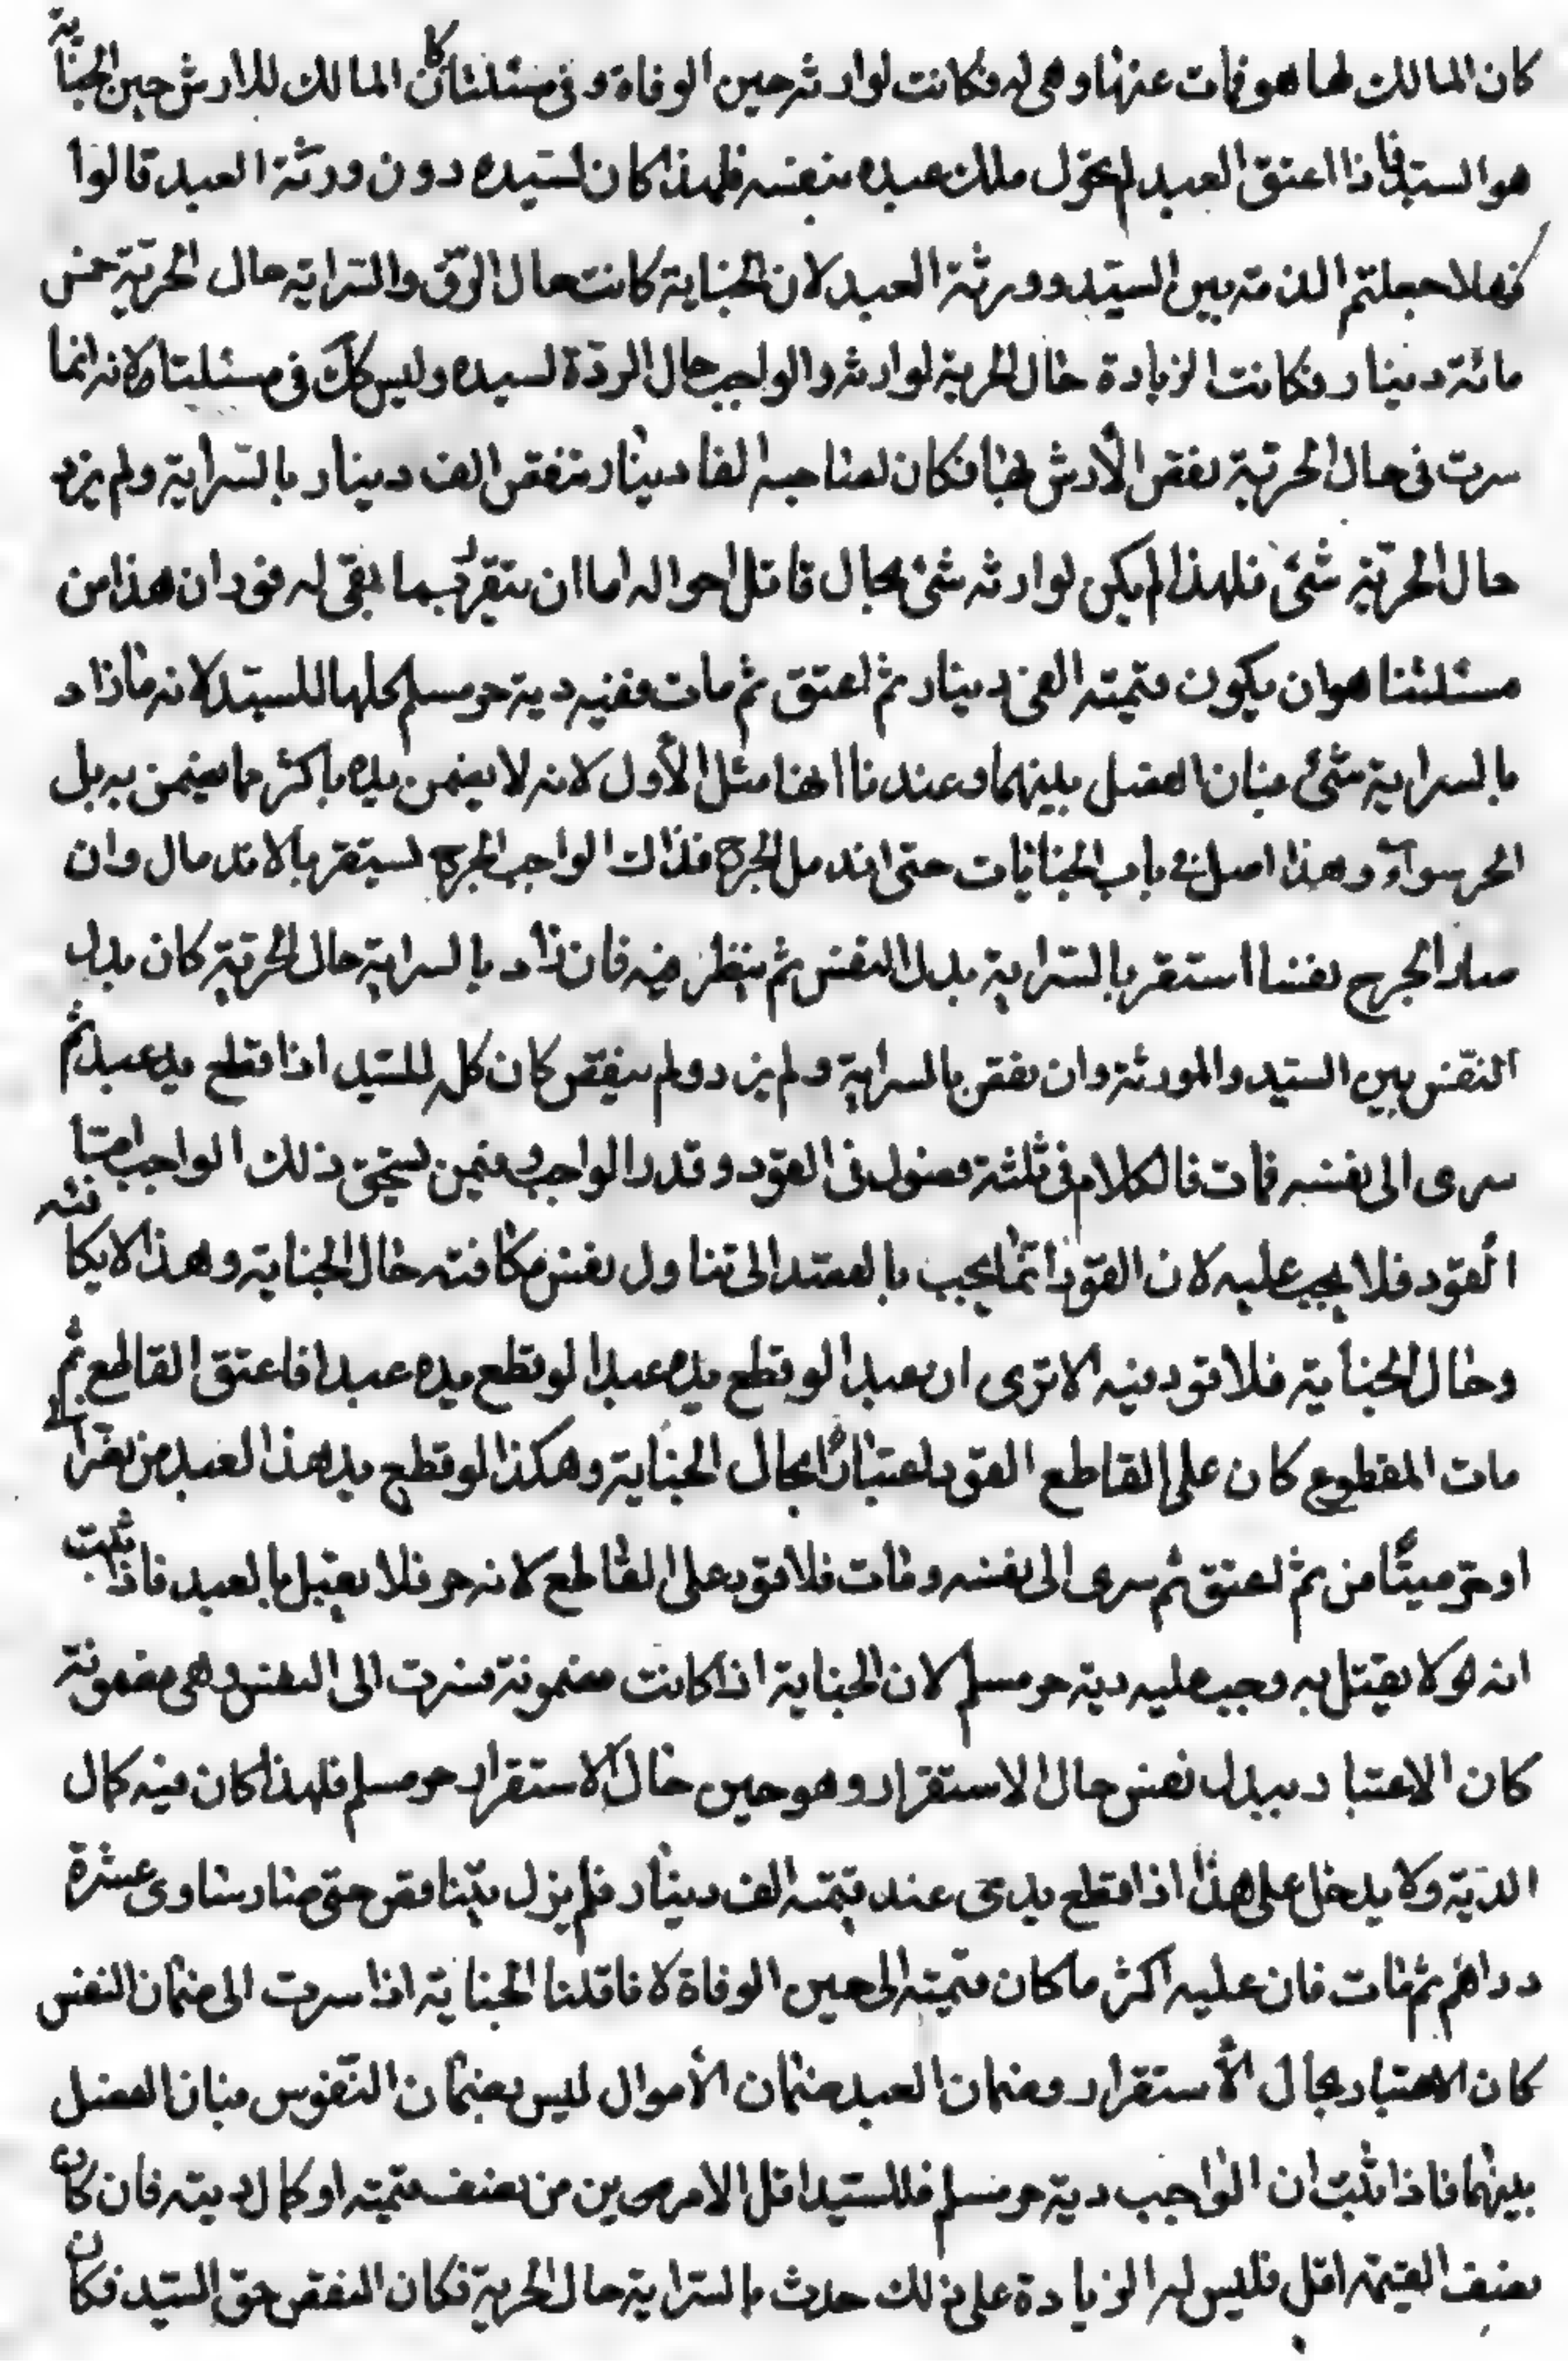 كان المالك لها هو فمات عنها وهي له فكانت لوارثه حين الوفاة وفي مسئلتنا كان المالك للارش حين الجناية
هو السيد فاذا اعتق العبد لم يحول ملك عبده بنفسه فلهذا كان لسيده دون ورثة العبد قالوا
فهلا جعلتم الذمته بين السيد وورثة العبد لان الجناية كانت حال الرق والسراية حال الحرية خمس
مائة دينار فكانت الزيادة حال الحرية لوارثه والواجب حال الردة لسيده وليس كك في مسئلتنا لانه انما
سرت في حال الحرية نقص الأرش لها فكان لصاحبه الفا دينار فنقص الف دينار بالسراية ولم يزد
حال الحرية شئ فلهذا لم يكن لوارثه شئ بحال فاقل احواله اما ان يتقرر بما بقي له فوزان هذا من
مسئلتنا هو ان يكون قيمته الفي دينار ثم اعتق ثم مات ففيه دية حر مسلم كلها للسيد لانه ما زاد
بالسراية شئ فبان الفصل بينهما وعندنا انها مثل الأول لانه لا يضمن يده باكثر مما يضمن به بل
الحر سواء وهذا اصل في باب الجنايات حتى اندمل الجرح فذاك الواجب الجرح يستقر بالاندمال وان
صار الجرح نفسا استقر بالسراية بدل النفس ثم ينظر فيه فان زاد بالسراية حال الحرية كان بدل
النفس بين السيد والورثة وان نقص بالسراية ولم يزد ولم ينقص كان كله للسيد اذا قطع يد عبد ثم
سرى الى نفسه فمات فالكلام في ثلثة فصول في القود وقدر الواجب وفيمن يستحق ذلك الواجب امتا
القود فلا يجب عليه لان القود انما يجب بالقصد الى تناول نفس مكافئه حال الجناية وهذا لا يكافئه
وحال الجناية فلا قود فيه الا ترى ان عبدا لو قطع يده عبدا لو قطع يده عبدا فاعتق القاطع ثم
مات المقطوع كان على القاطع القود اعتبارا بحال الجناية وهكذا لو قطع يد هذا العبد من نصراني
او حر ميتا من ثم اعتق ثم سرى الى نفسه ومات فلا قود على القاطع لانه حر فلا يقتل بالعبد فاذا ثبت
انه هو لا يقتل به وجب عليه دية حر مسلم لان الجناية اذا كانت مضمونة فسرت الى النفس وهي مضمونة
كان الاعتبار ببدل نفس حال الاستقرار وهو حين حال الاستقرار حر مسلم فلهذا كان فيه كمال
الدية ولا يدخل على هذا اذا قطع يدي عبد قيمته الف دينار فلم يزل يتناقص حتى صار يساوي عشرة
دراهم ثم مات فان عليه اكثر ما كان قيمته الى حين الوفاة لانا قلنا الجناية اذا سرت الى ضمان النفس
كان الاعتبار بحال الأستقرار وضمان العبد ضمان الأموال ليس بضمان النفوس فبان الفصل
بينهما فاذا ثبت ان الواجب دية حر مسلم فللسيد اقل الامرين من نصف قيمته او كمال ديته فان كان
نصف القيمة اقل فليس له الزيادة على ذلك حدث بالسراية حال الحرية فكان النقص حق السيد فكان